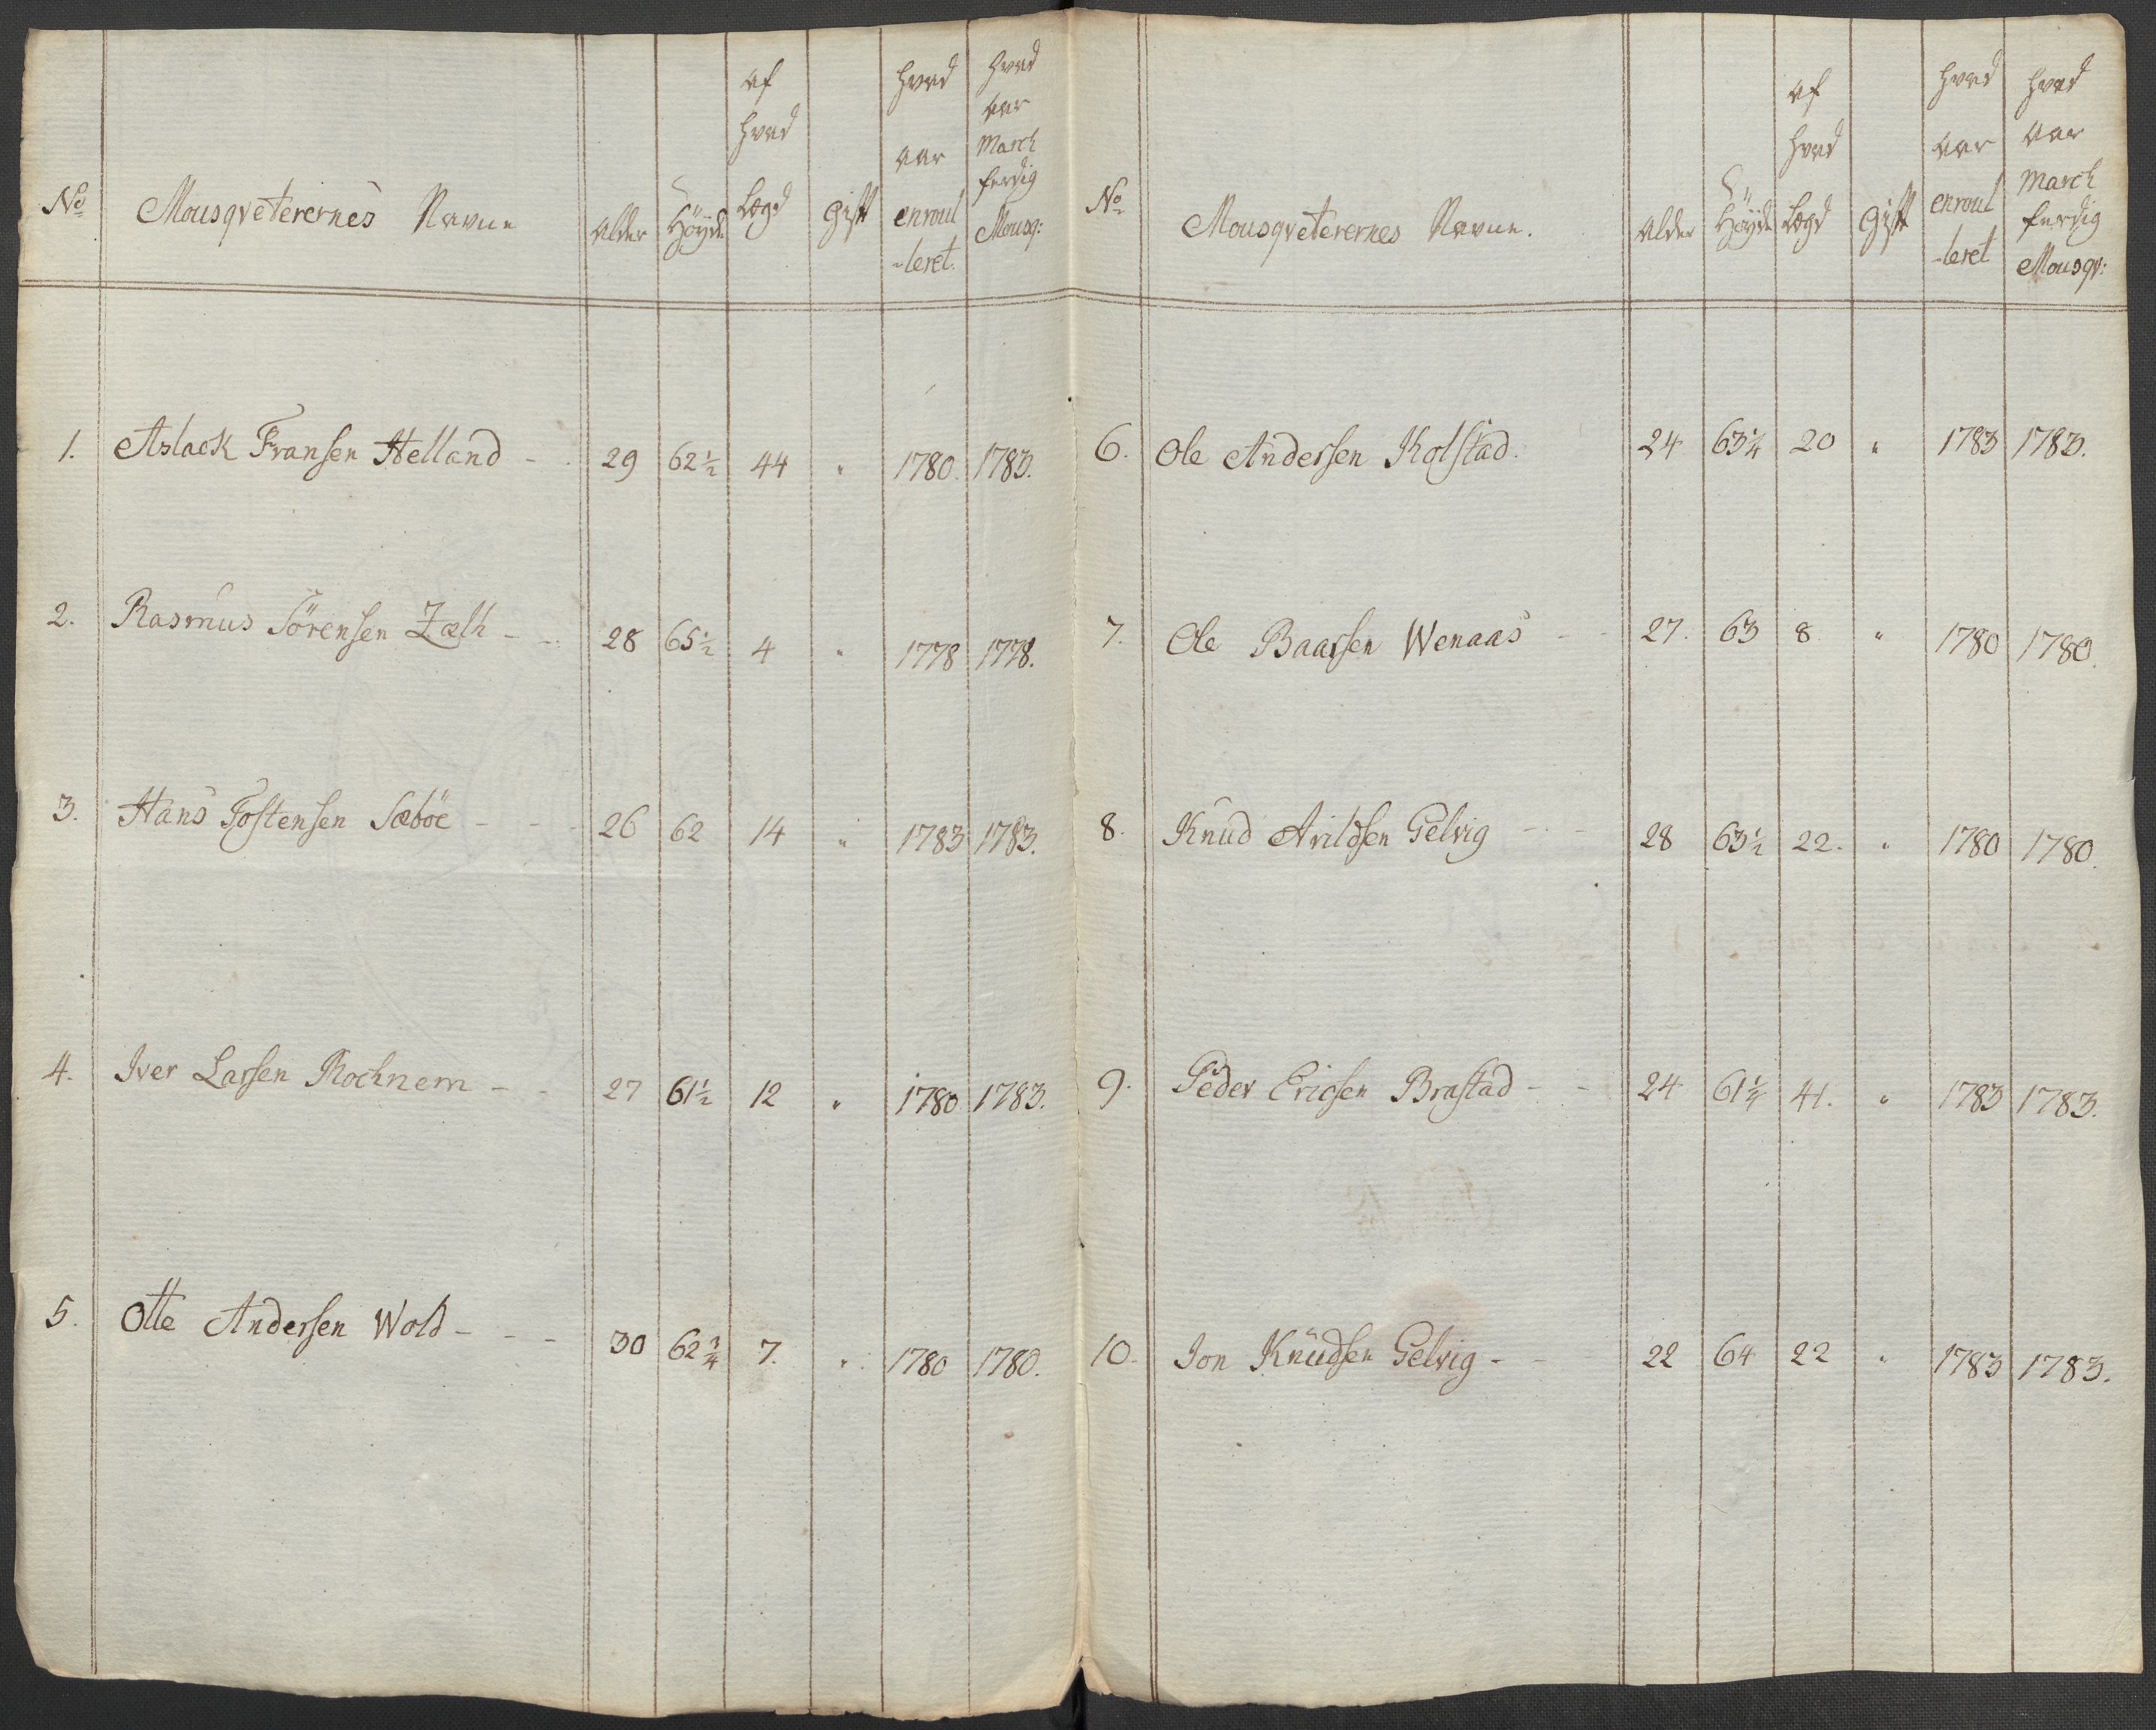 No Mousqveterernes Navne alder Höyde af hvad Lægd gift hvad aar enroul-leret. hvad aar March ferdig Mousq:
1. Aslack Fransen Helland - 29 62½ 44 " 1780. 1783.
2. Rasmus Sörensen Zælh - - 28 65½ 4 " 1778 1778.
3. Hans Tostensen Sæböe - - - 26 62 14 " 1783 1783.
4. Iver Larsen Rochnem - - 27 61½ 12 " 1780 1783.
5. Otte Andersen Wold - - - 30 62¾ 7. " 1780 1780.
No Mousqveterernes Navne. alder Höyde af hvad Lægd gift hvad aar enroul-leret hvad aar March ferdig Mousqv:
6. Ole Andersen Kolstad. 24 63¼ 20 " 1783 1783.
7. Ole Baarsen Wenaas - - 27. 63 8 " 1780 1780.
8. Knud Arildsen Gelvig - - 28 63½ 22. " 1780 1780.
9. Peder Ericsen Brastad - - 24 61¼ 41. " 1783 1783.
10. Jon Knudsen Gelvig - - 22 64 22 " 1783 1783.